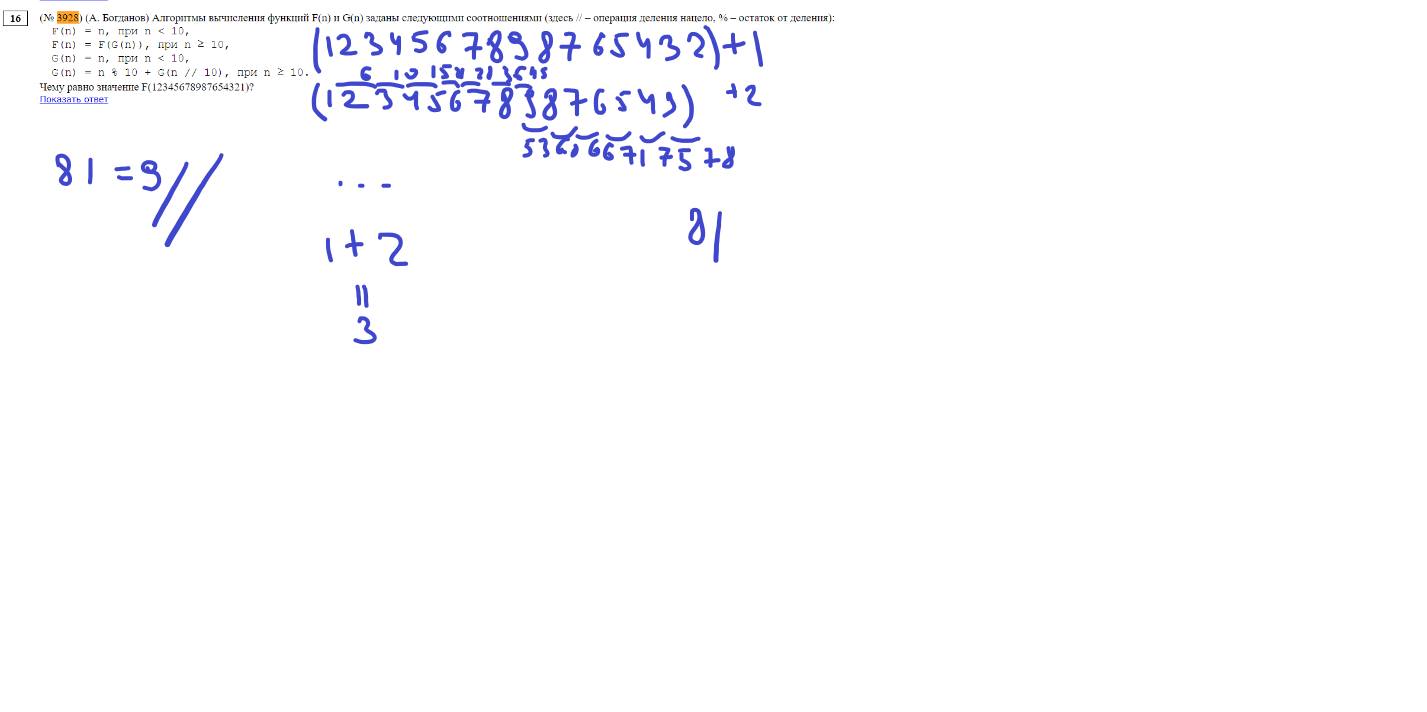 16
(№ 3928) (А. Богданов) Алгоритмы вычисления функций F(n) и G(n) заданы следующими соотношениями (здесь // – операция деления нацело, % – остаток от деления):
F(n) = n, при n < 10,
F(n) = F(G(n)), при n ≥ 10,
G(n) = n, при n < 10,
G(n) = n % 10 + G(n // 10), при n ≥ 10.
Чему равно значение F(12345678987654321)?
Показать ответ
(1234567898765432)+1
6 10 15 21 36 45
(123456789876543) +2
53 60 66 71 75 78
81 = 9
...
1+2
=
3
81